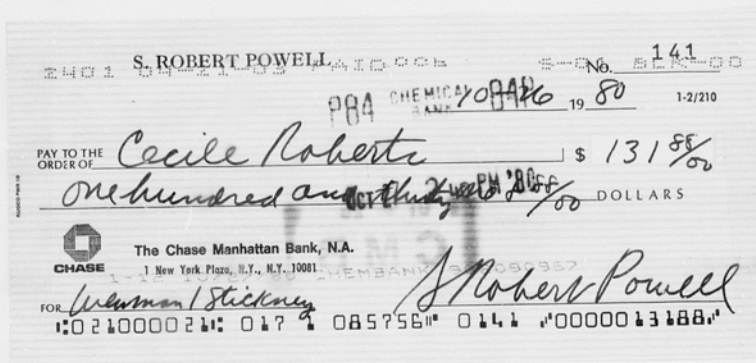 S. ROBERT POWELL
No. 141
P84 CHEMICAL BANK
10 26 19 80
1-2/210
PAY TO THE ORDER OF Cecile Roberts $ 131 88/00
one hundred and 88/00 DOLLARS
CHASE
The Chase Manhattan Bank, N.A.
1 New York Plaza, N.Y., N.Y. 10081
FOR Newman / Stickney S Robert Powell
⑆021000021⑆ 017 1 085756⑈ 0141 ⑈0000013188⑈